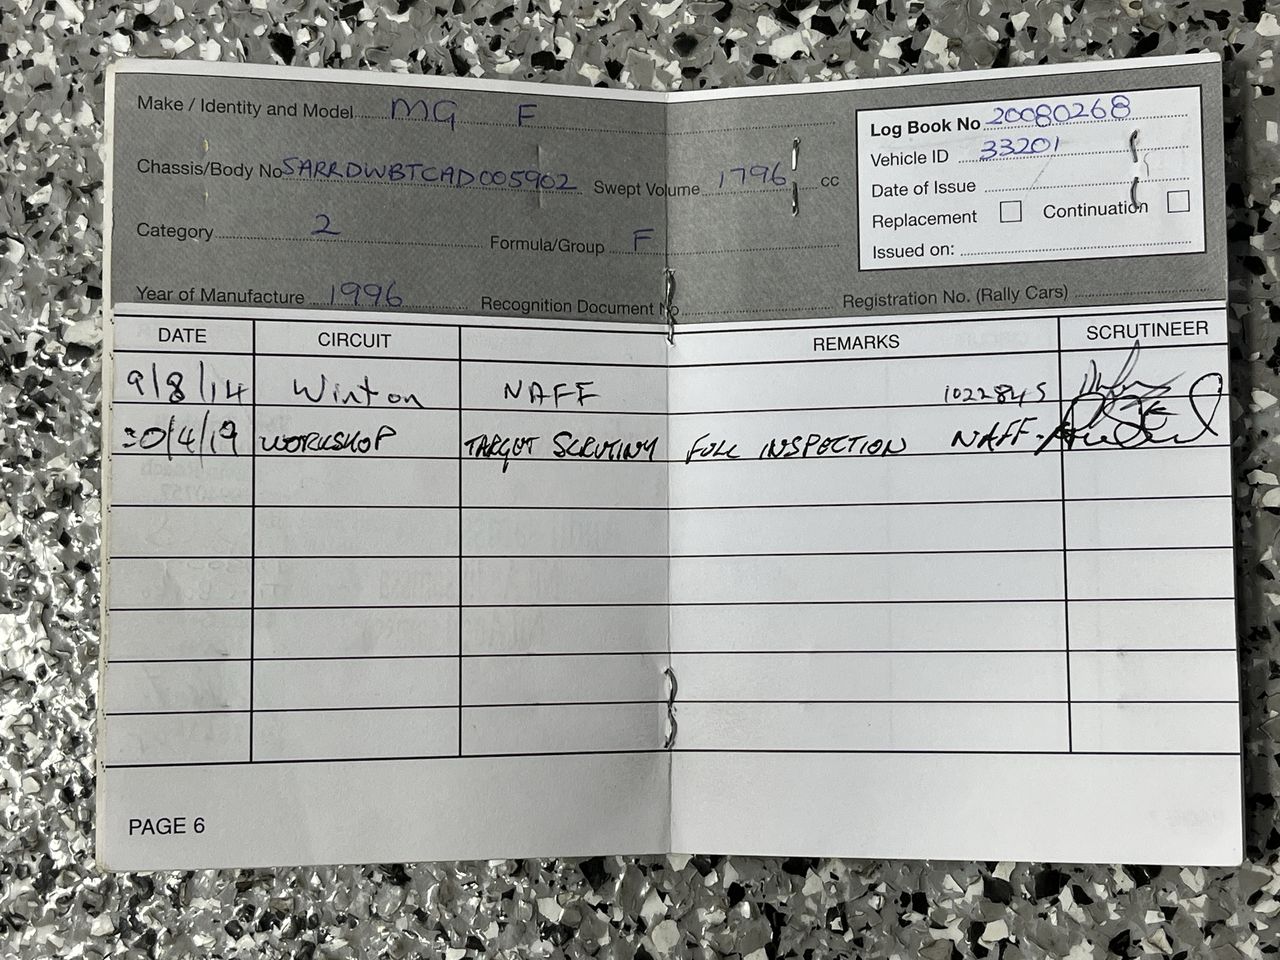 Make / Identity and Model MG F
Log Book No 20080268
Vehicle ID 33201
Chassis/Body No SARRDWBTCAD005902 Swept Volume 1796 cc
Date of Issue
Replacement Continuation
Category 2 Formula/Group F
Issued on:
Year of Manufacture 1996 Recognition Document No. Registration No. (Rally Cars)
DATE CIRCUIT REMARKS SCRUTINEER
9/8/14 Winton NAFF 1022845
30/4/19 WORKSHOP TARGET SCRUTINY FULL INSPECTION NAFF.
PAGE 6